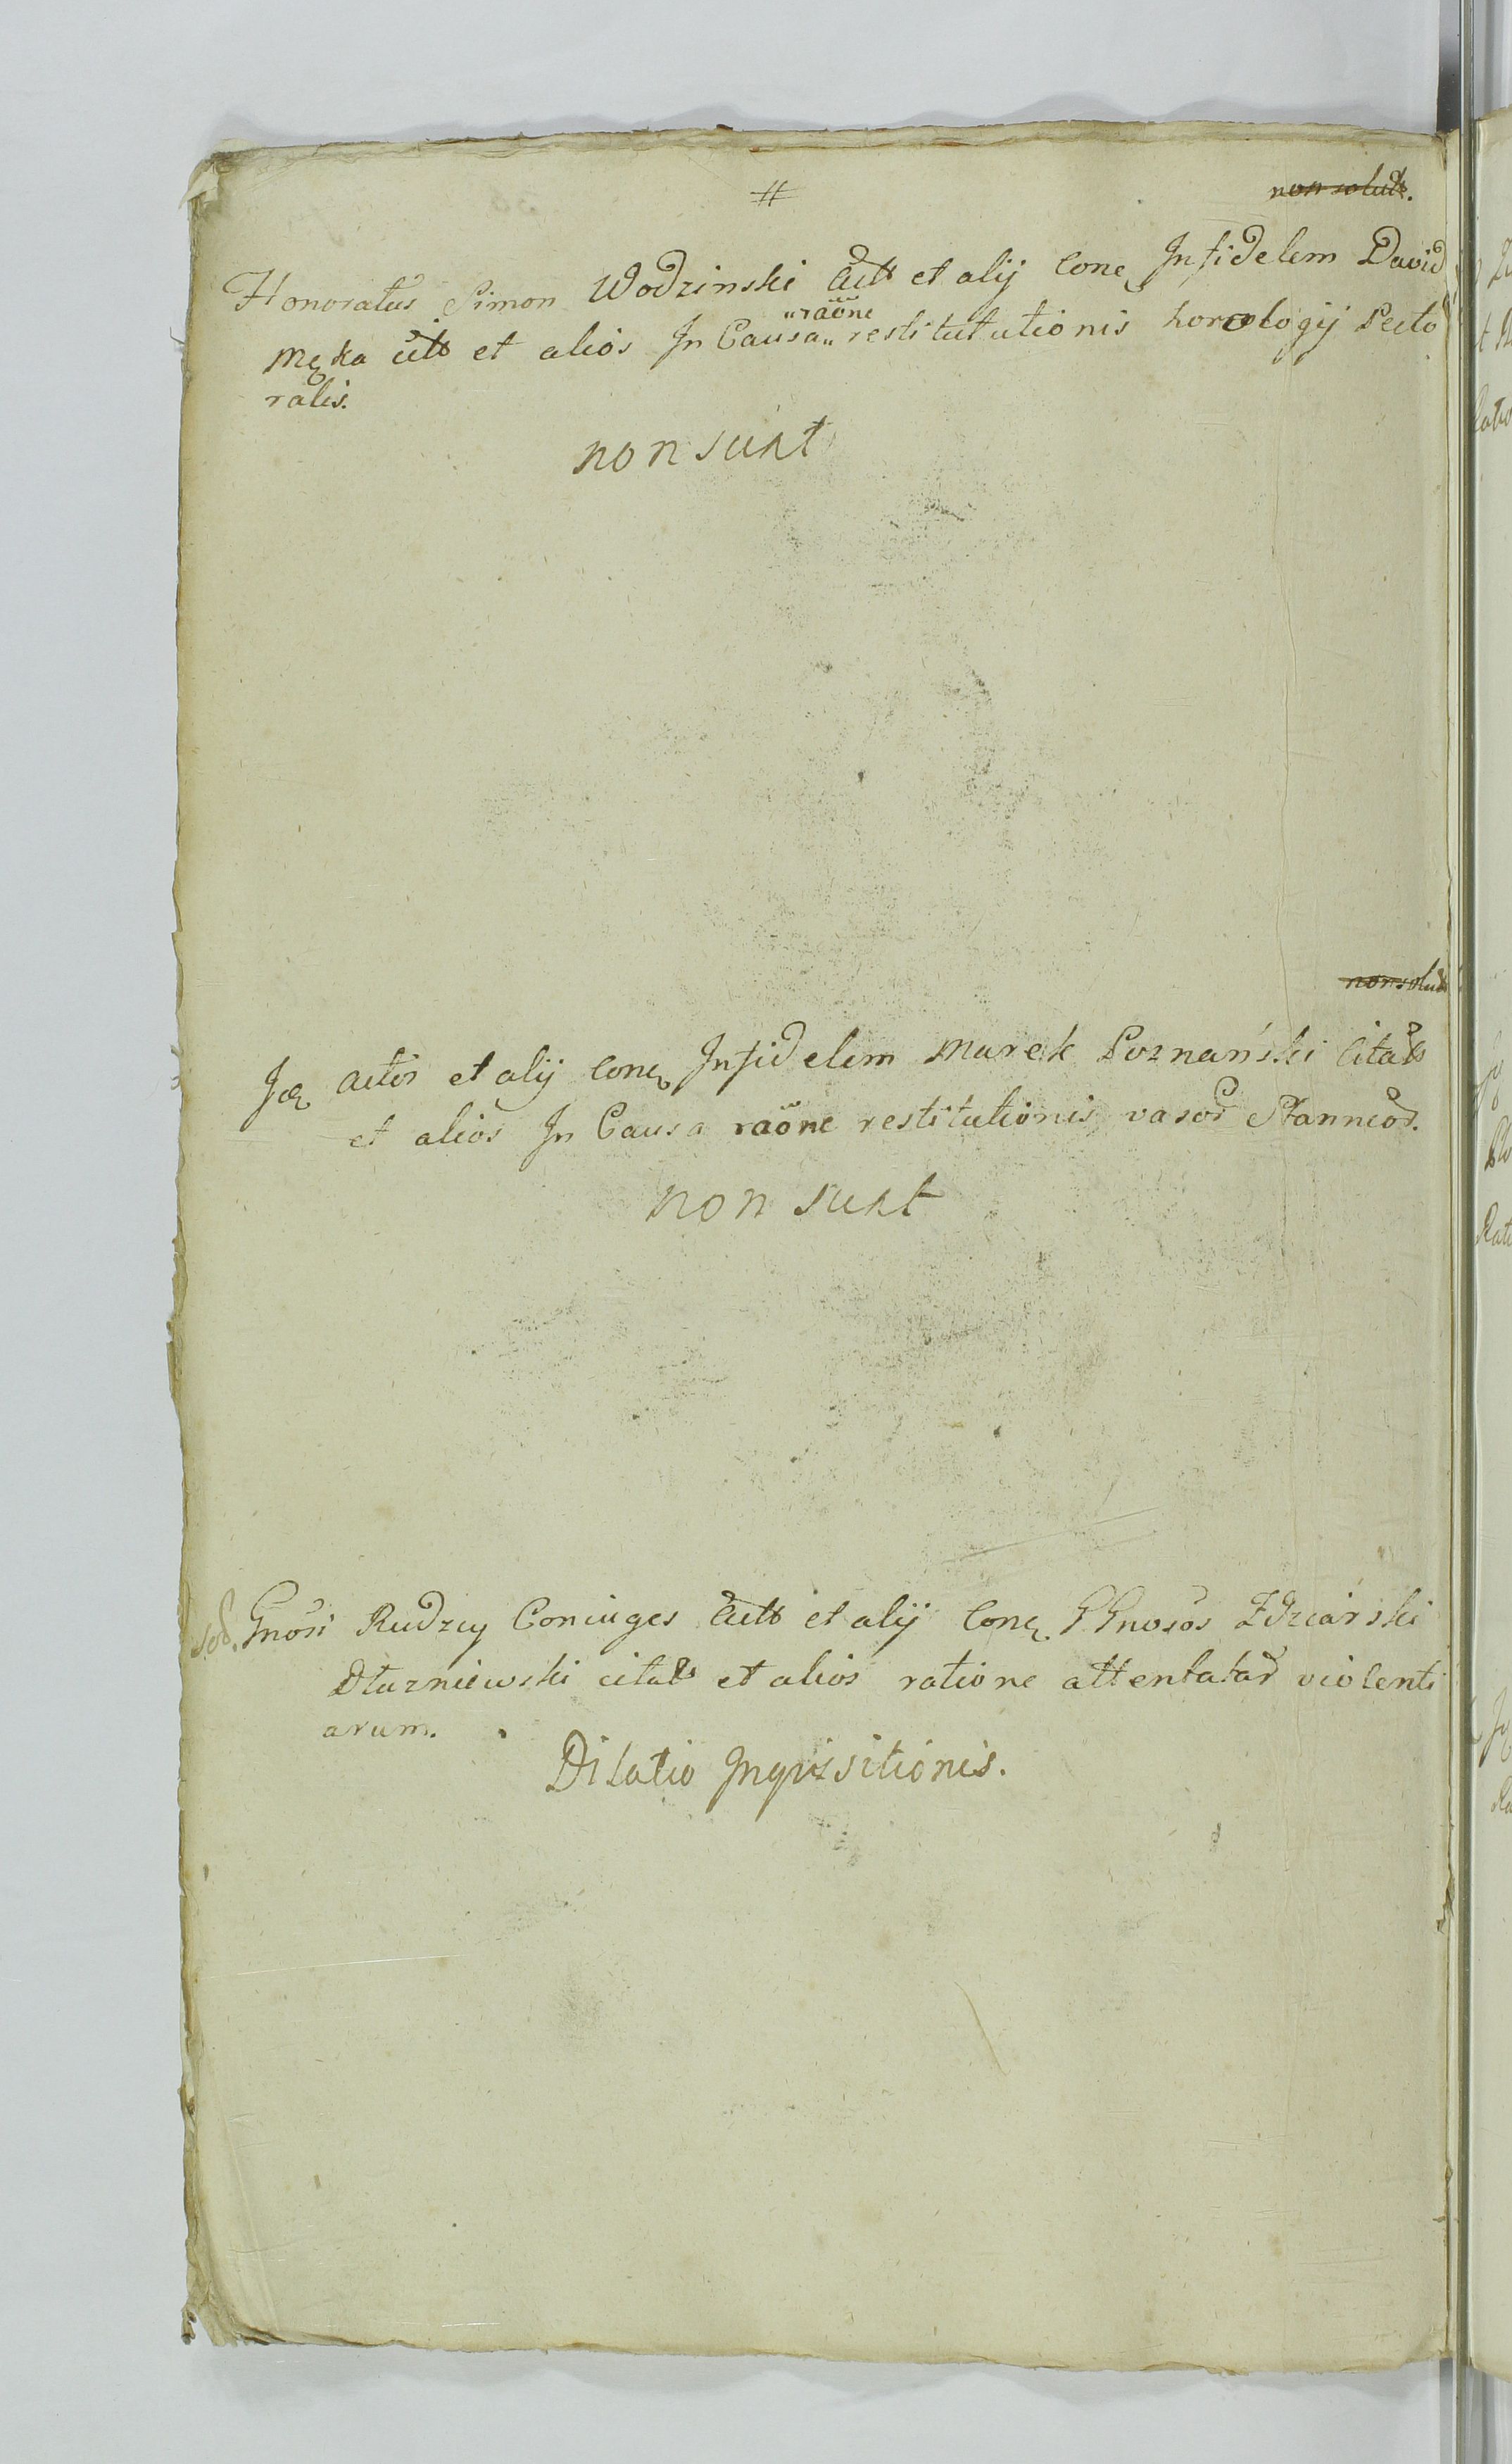 #
non solut.
Honoratus Simon Wodzinski Act et alij Conq Infidelem David
Męka cit et alios In Causa „raõne restitututionis horologij Pecto
ralis.
non sunt
non solut
Iq Actor et alij Conq Infidelem Marek Poznański Citat
et alios In Causa raõne restitutionis vasor Stanneor.
non sunt
sol. Gnosi Rudzcy Coniuges Act et alij Conq. GGnosos Zdziarski
Dłuzniewski citat et alios ratione attentatar violenti
arum.
Dilatio Inquisitionis.